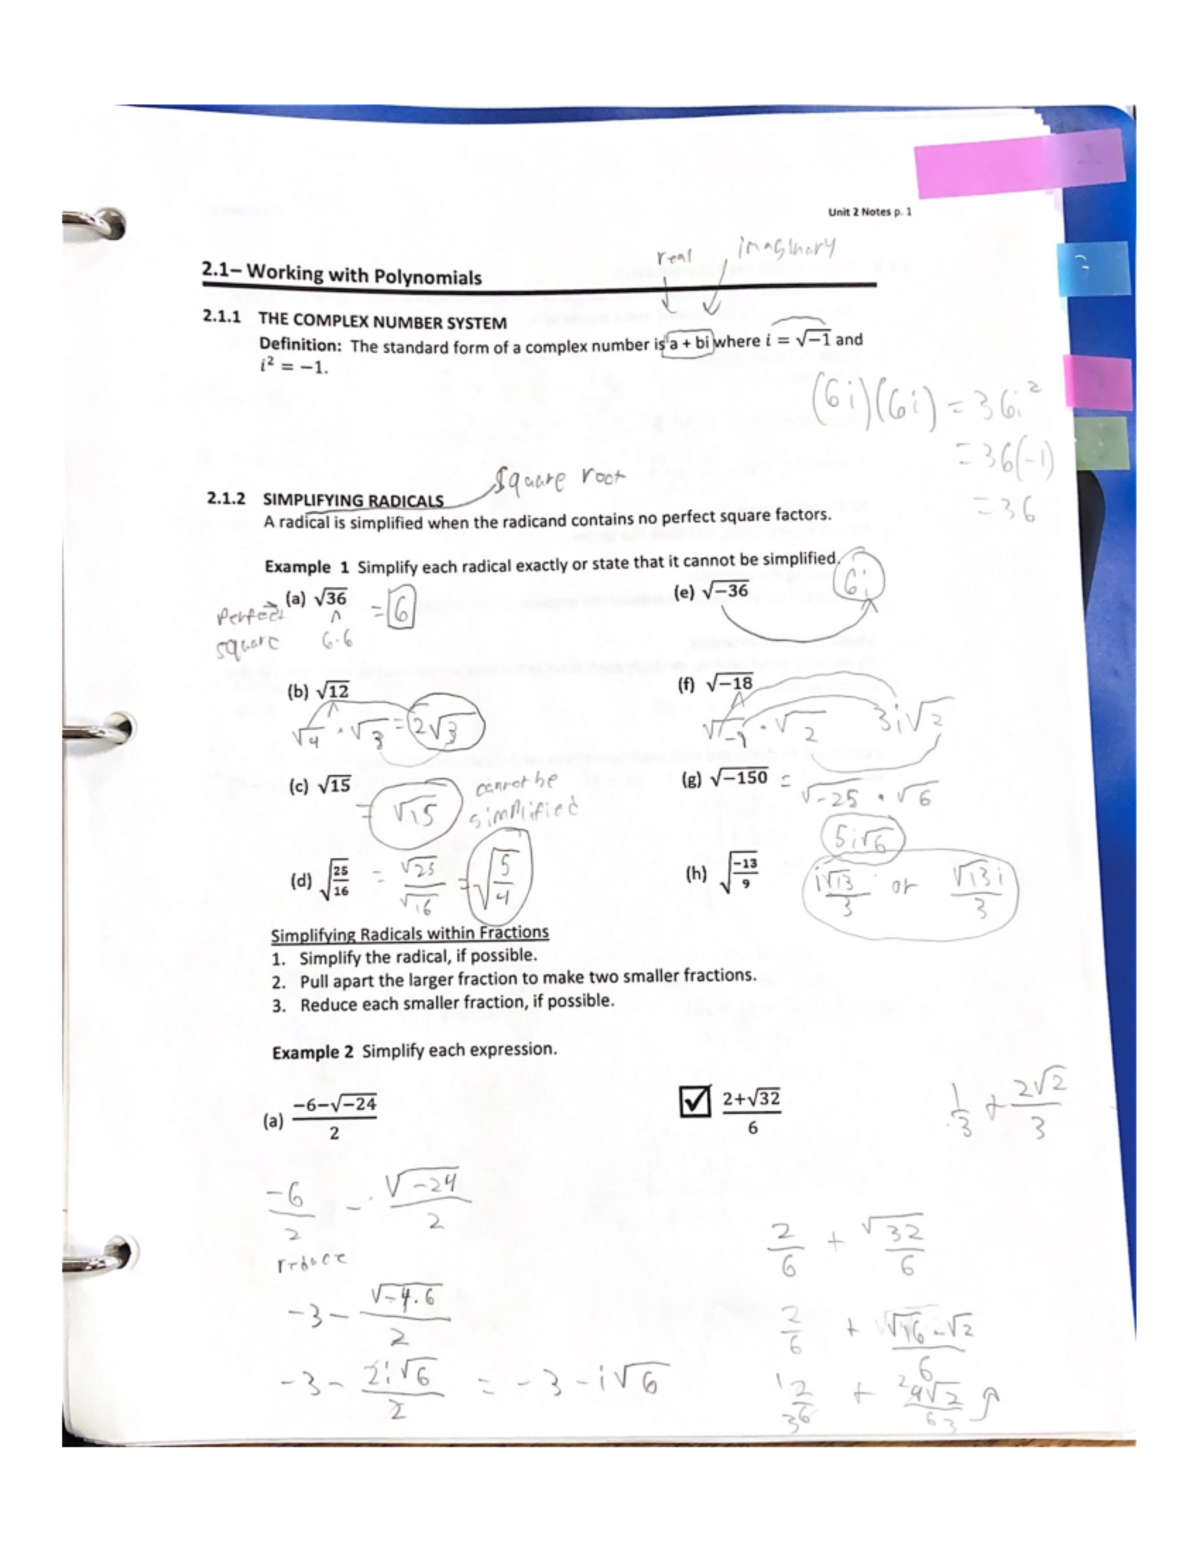 Unit 2 Notes p. 1
real imaginary
2.1– Working with Polynomials
2.1.1 THE COMPLEX NUMBER SYSTEM
Definition: The standard form of a complex number is a + bi where i = √−1 and
i² = −1.
(6i)(6i) = 36i²
= 36(-1)
= 36
square root
2.1.2 SIMPLIFYING RADICALS
A radical is simplified when the radicand contains no perfect square factors.
Example 1 Simplify each radical exactly or state that it cannot be simplified.
(a) √36 = 6
perfect
square 6·6
(e) √−36 6i
(b) √12
√4 · √3 = 2√3
(f) √−18
√2 3i√2
(c) √15 = √15 cannot be
simplified
(g) √−150 = √-25 · √6
5i√6
(d) √25/16 = √25/√16 = √5/4
(h) √−13/9 i√13/3 or √13 i/3
Simplifying Radicals within Fractions
1. Simplify the radical, if possible.
2. Pull apart the larger fraction to make two smaller fractions.
3. Reduce each smaller fraction, if possible.
Example 2 Simplify each expression.
(a) −6−√−24/2
-6/2 - √-24/2
reduce
-3 - √-4·6/2
-3 - 2i√6/2 = -3 - i√6
2+√32/6
1/3 + 2√2/3
2/6 + √32/6
2/6 + √16 · √2/6
1 2/36 + 2 4√2/63